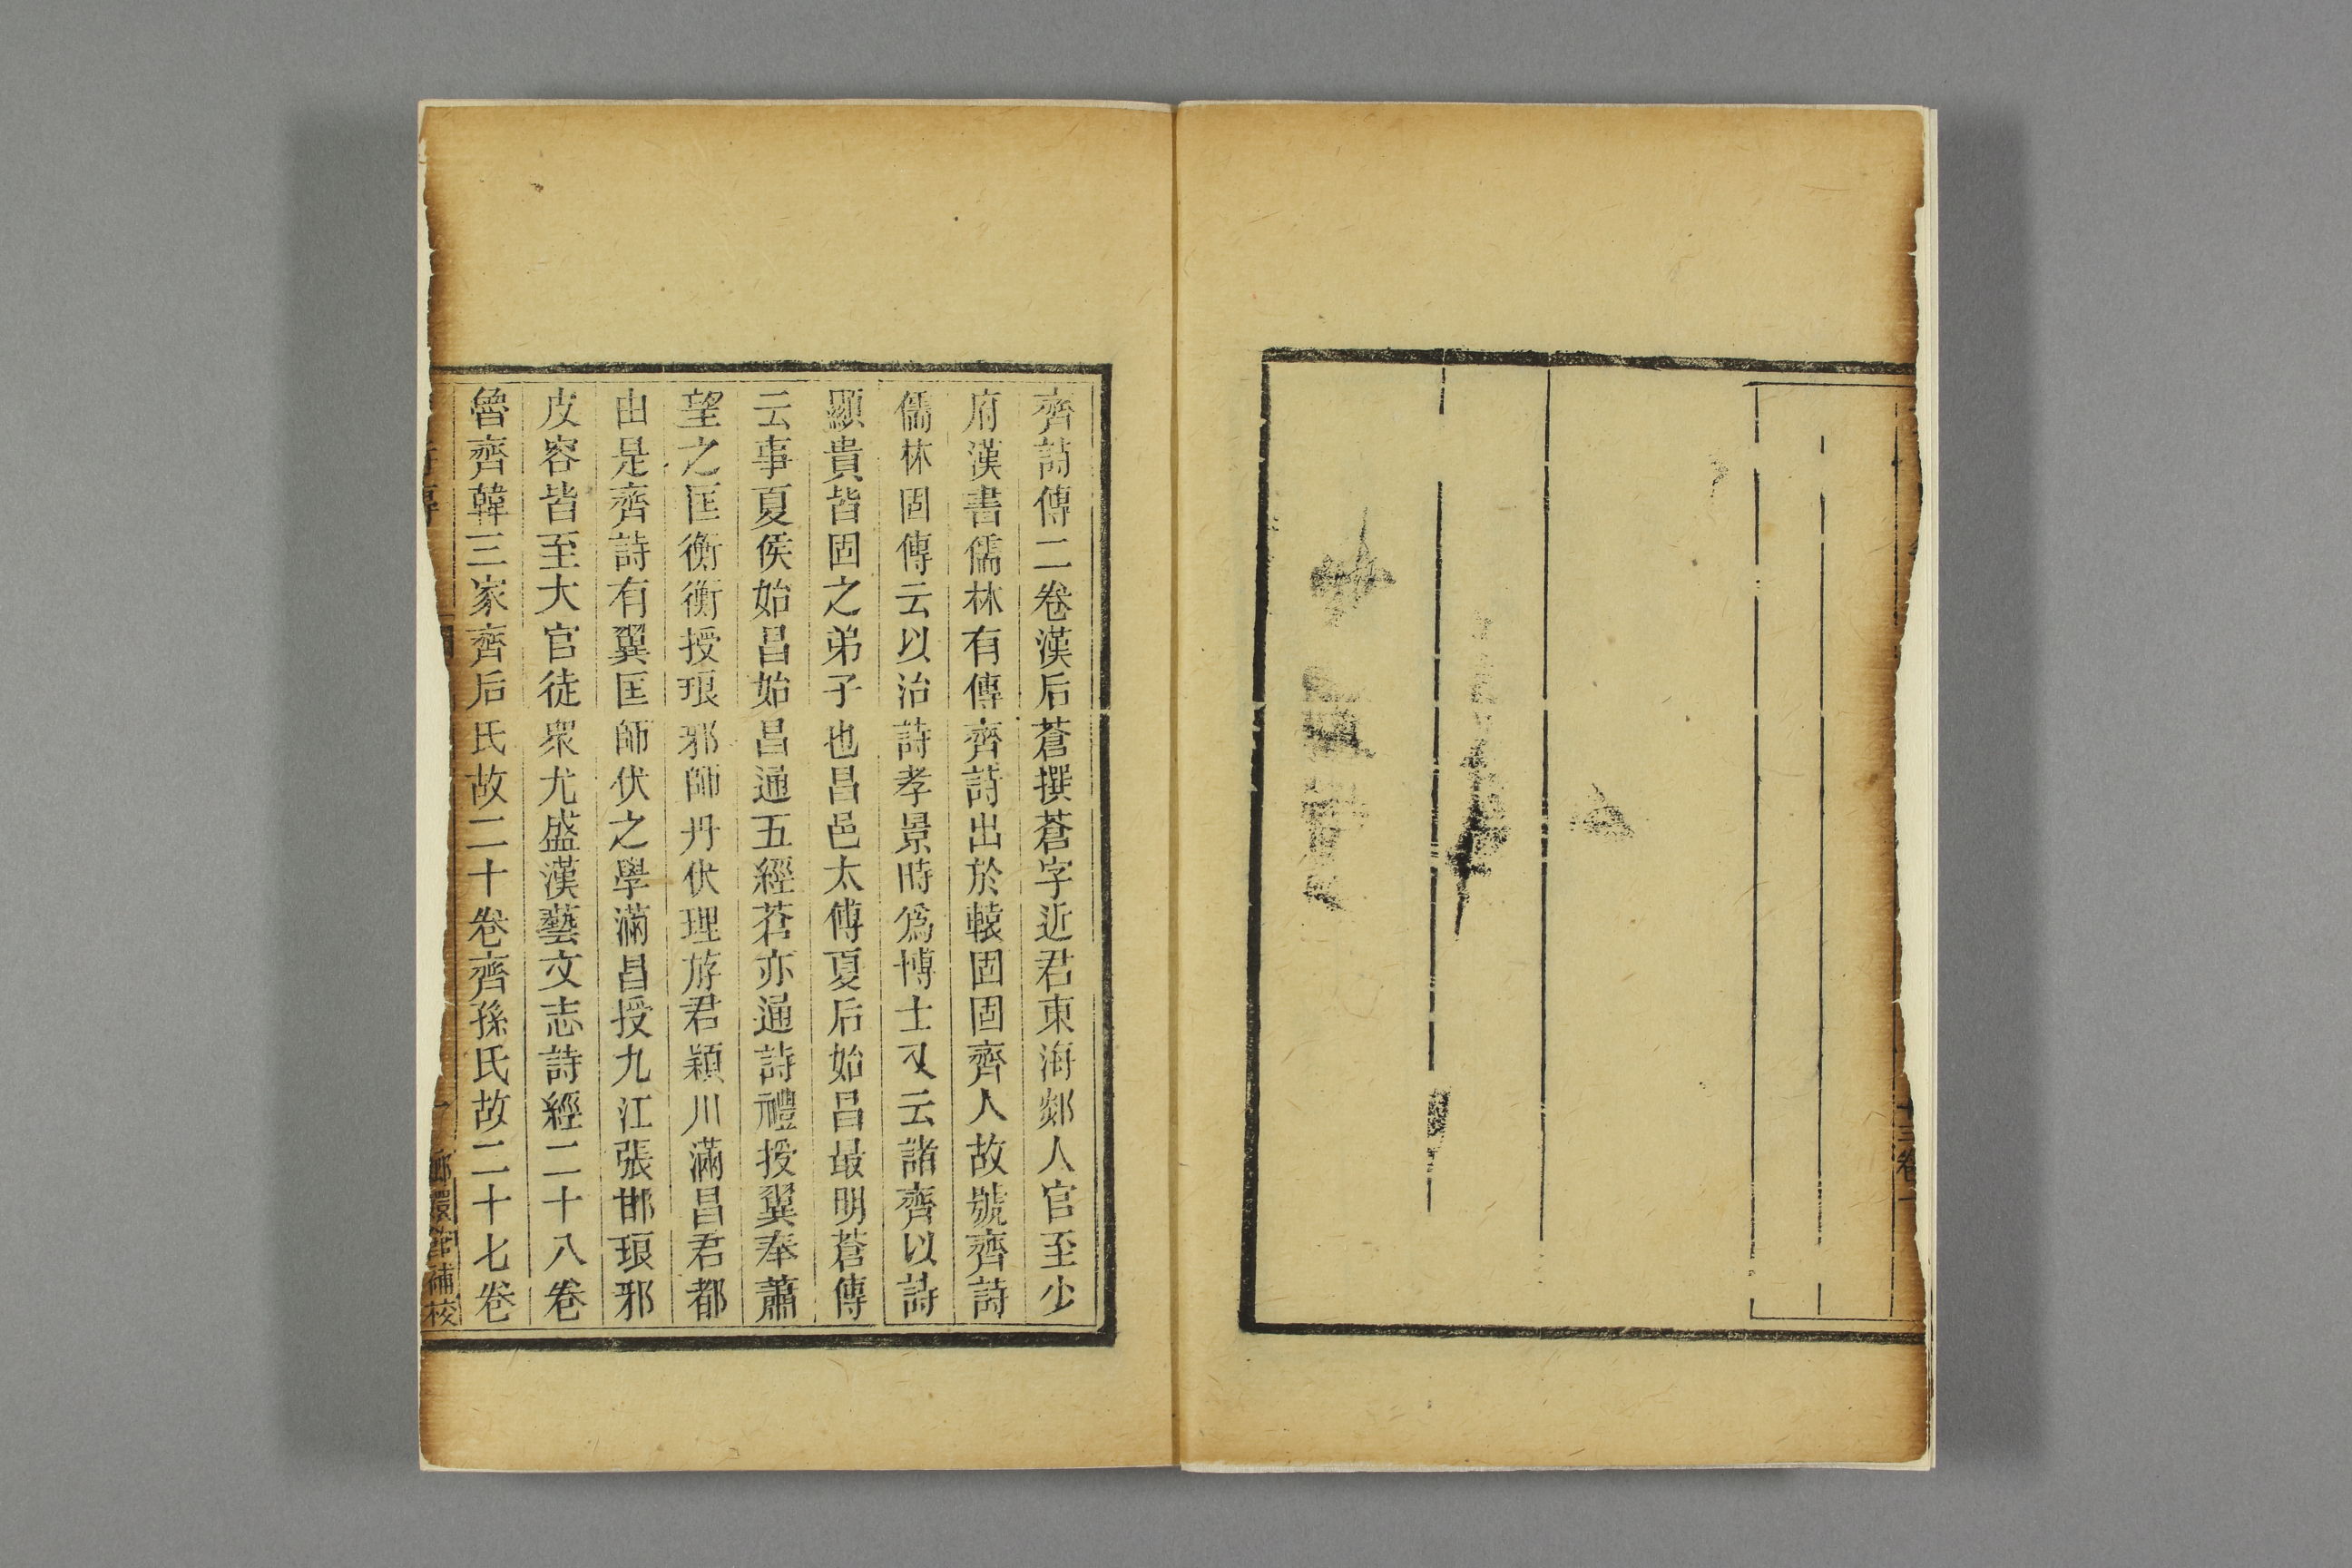 齊詩傳二卷漢后蒼撰蒼字近君東海郯人官至少
府漢書儒林有傳齊詩出於轅固固齊人故號齊詩
儒林固傳云以治詩孝景時爲博士又云諸齊以詩
顯貴皆固之弟子也昌邑太傅夏后始昌最明蒼傳
云事夏侯始昌始昌通五經蒼亦通詩禮授翼奉蕭
望之匡衡衡授琅邪師丹伏理斿君潁川滿昌君都
由是齊詩有翼匡師伏之學滿昌授九江張邯琅邪
皮容皆至大官徒衆尤盛漢藝文志詩經二十八卷
魯齊韓三家齊后氏故二十卷齊孫氏故二十七卷
嫏嬛館補校